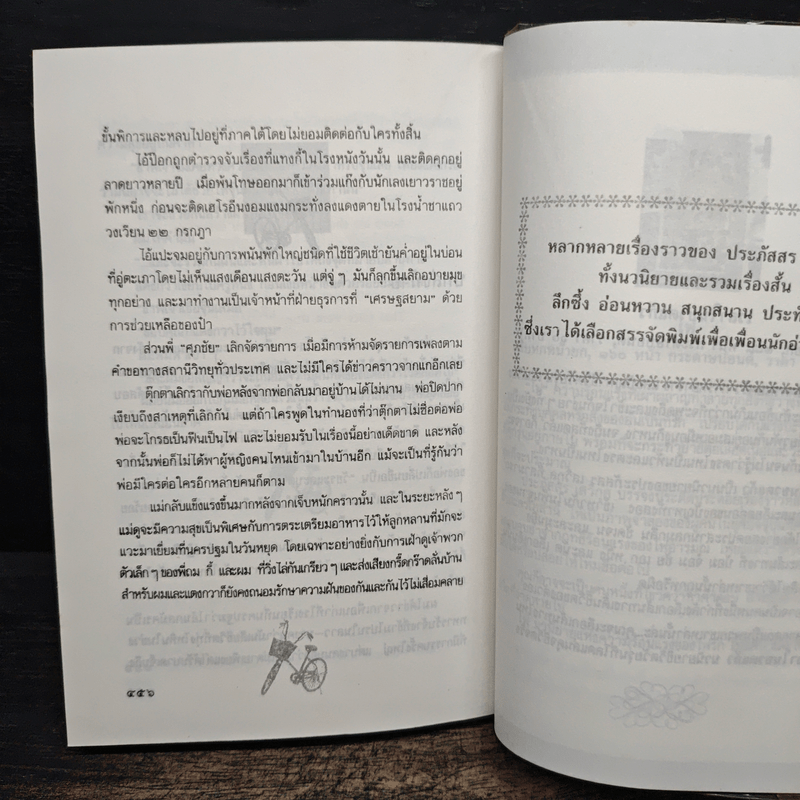 ขั้นพิการและหลบไปอยู่ที่ภาคใต้โดยไม่ยอมติดต่อกับใครทั้งสิ้น
ไอ้ป๊อกถูกตำรวจจับเรื่องที่แทงกี้ในโรงหนังวันนั้น และติดคุกอยู่
ลาดยาวหลายปี เมื่อพ้นโทษออกมาก็เข้าร่วมแก๊งกับนักเลงเยาวราชอยู่
พักหนึ่ง ก่อนจะติดเฮโรอีนงอมแงมกระทั่งลงแดงตายในโรงน้ำชาแถว
วงเวียน ๒๒ กรกฎา
ไอ้แปะจมอยู่กับการพนันพักใหญ่ชนิดที่ใช้ชีวิตเช้ายันค่ำอยู่ในบ่อน
ที่อู่ตะเภาโดยไม่เห็นแสงเดือนแสงตะวัน แต่จู่ ๆ มันก็ลุกขึ้นเลิกอบายมุข
ทุกอย่าง และมาทำงานเป็นเจ้าหน้าที่ฝ่ายธุรการที่ "เศรษฐสยาม" ด้วย
การช่วยเหลือของป้า
ส่วนพี่ "ศุภชัย" เลิกจัดรายการ เมื่อมีการห้ามจัดรายการเพลงตาม
คำขอทางสถานีวิทยุทั่วประเทศ และไม่มีใครได้ข่าวคราวจากแกอีกเลย
ตุ๊กตาเลิกรากับพ่อหลังจากพ่อกลับมาอยู่บ้านได้ไม่นาน พ่อปิดปาก
เงียบถึงสาเหตุที่เลิกกัน แต่ถ้าใครพูดในทำนองที่ว่าตุ๊กตาไม่ซื่อต่อพ่อ
พ่อจะโกรธเป็นฟืนเป็นไฟ และไม่ยอมรับในเรื่องนี้อย่างเด็ดขาด และหลัง
จากนั้นพ่อก็ไม่ได้พาผู้หญิงคนไหนเข้ามาในบ้านอีก แม้จะเป็นที่รู้กันว่า
พ่อมีใครต่อใครอีกหลายคนก็ตาม
แม่กลับแข็งแรงขึ้นมากหลังจากเจ็บหนักคราวนั้น และในระยะหลัง ๆ
แม่ดูจะมีความสุขเป็นพิเศษกับการตระเตรียมอาหารไว้ให้ลูกหลานที่มักจะ
แวะมาเยี่ยมที่นครปฐมในวันหยุด โดยเฉพาะอย่างยิ่งกับการเฝ้าดูเจ้าพวก
ตัวเล็ก ๆ ของพี่ถม กี้ และผม ที่วิ่งไล่กันเกรียว ๆ และส่งเสียงกรี๊ดกร๊าดลั่นบ้าน
สำหรับผมและแดงกวาก็ยังคงถนอมรักษาความฝันของกันและกันไว้ไม่เสื่อมคลาย
๔๕๖
หลากหลายเรื่องราวของ ประภัสสร
ทั้งนวนิยายและรวมเรื่องสั้น
ลึกซึ้ง อ่อนหวาน สนุกสนาน
ซึ่งเราได้เลือกสรรจัดพิมพ์เพื่อเพื่อนนัก